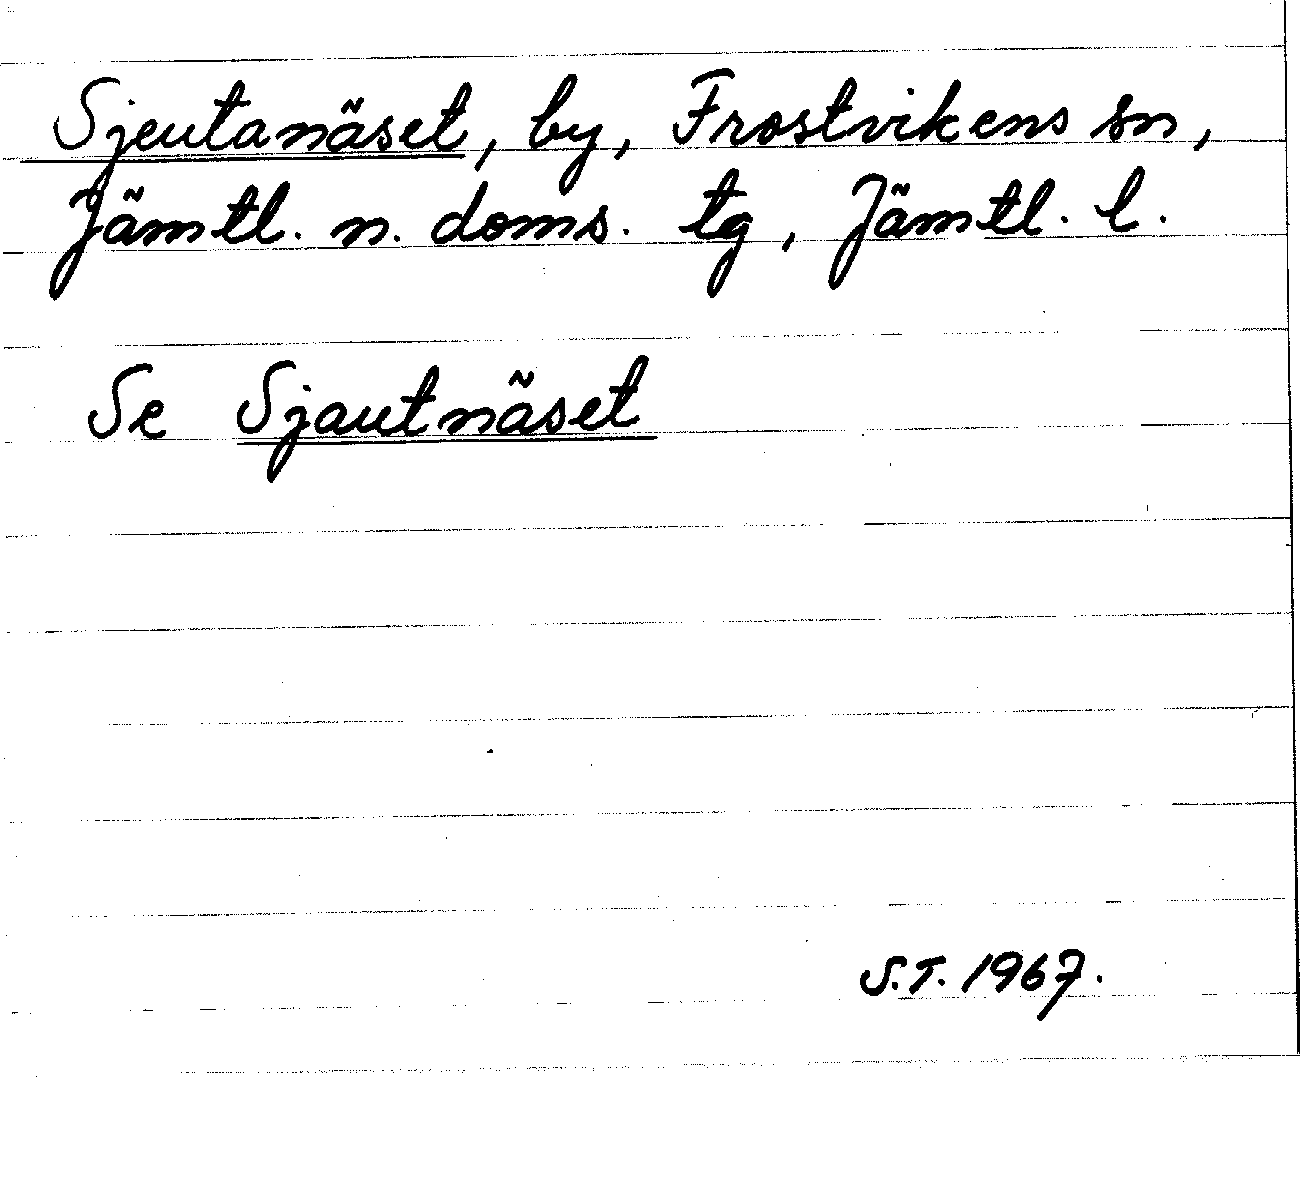 Sjeutanäset, by, Frostvikens sn,
Jämtl. n. doms. tg, Jämtl. l.
Se Sjautnäset
S.T. 1967.